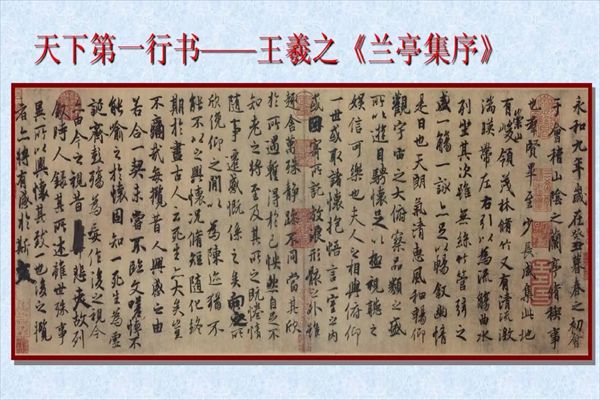 天下第一行书——王羲之《兰亭集序》
永和九年歲在癸丑暮春之初會
于會稽山陰之蘭亭脩稧事
也群賢畢至少長咸集此地
有崇山峻領茂林脩竹又有清流激
湍暎帶左右引以為流觴曲水
列坐其次雖無絲竹管弦之
盛一觴一詠亦足以暢敘幽情
是日也天朗氣清惠風和暢仰
觀宇宙之大俯察品類之盛
所以遊目騁懷足以極視聽之
娛信可樂也夫人之相與俯仰
一世或取諸懷抱悟言一室之內
或因寄所託放浪形骸之外雖
趣舍萬殊靜躁不同當其欣
於所遇蹔得於己怏然自足不
知老之將至及其所之既惓情
隨事遷感慨係之矣向之所
欣俛仰之間以為陳迹猶不
能不以之興懷況脩短隨化終
期於盡古人云死生亦大矣豈
不痛哉每攬昔人興感之由
若合一契未嘗不臨文嗟悼不
能喻之於懷固知一死生為虛
誕齊彭殤為妄作後之視今
亦由今之視昔悲夫故列
敘時人錄其所述雖世殊事
異所以興懷其致一也後之攬
者亦將有感於斯文